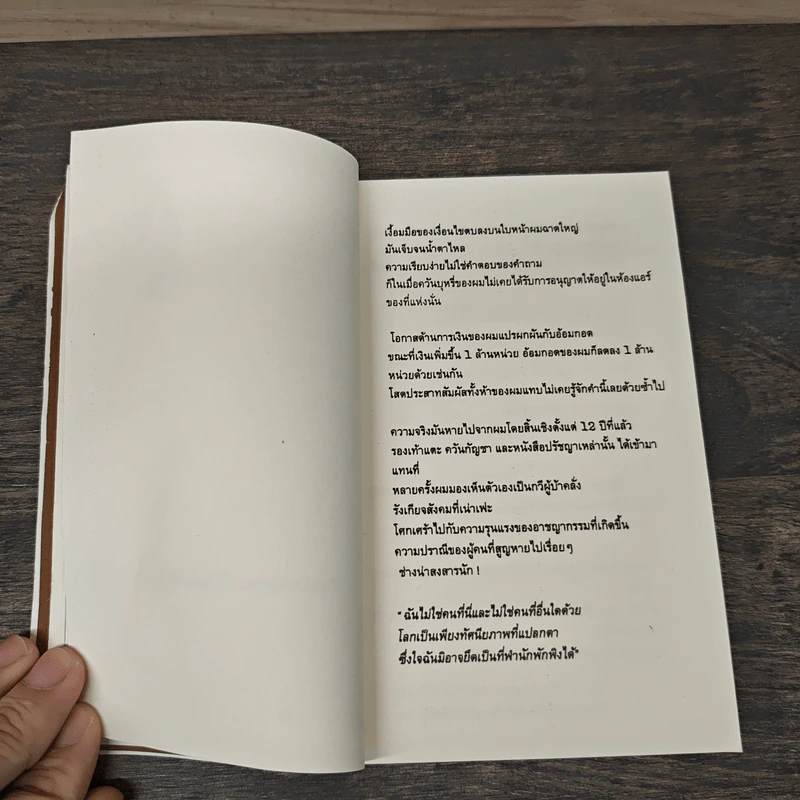 เงื้อมมือของเงื่อนไขตบลงบนใบหน้าผมฉาดใหญ่
มันเจ็บจนน้ำตาไหล
ความเรียบง่ายไม่ใช่คำตอบของคำถาม
ก็ในเมื่อควันบุหรี่ของผมไม่เคยได้รับการอนุญาตให้อยู่ในห้องแอร์
ของที่แห่งนั่น
โอกาสด้านการเงินของผมแปรผกผันกับอ้อมกอด
ขณะที่เงินเพิ่มขึ้น 1 ล้านหน่วย อ้อมกอดของผมก็ลดลง 1 ล้าน
หน่วยด้วยเช่นกัน
โสตประสาทสัมผัสทั้งห้าของผมแทบไม่เคยรู้จักคำนี้เลยด้วยซ้ำไป
ความจริงมันหายไปจากผมโดยสิ้นเชิงตั้งแต่ 12 ปีที่แล้ว
รองเท้าแตะ ควันกัญชา และหนังสือปรัชญาเหล่านั้น ได้เข้ามา
แทนที่
หลายครั้งผมมองเห็นตัวเองเป็นกวีผู้บ้าคลั่ง
รังเกียจสังคมที่เน่าเฟะ
โศกเศร้าไปกับความรุนแรงของอาชญากรรมที่เกิดขึ้น
ความปราณีของผู้คนที่สูญหายไปเรื่อยๆ
ช่างน่าสงสารนัก !
“ ฉันไม่ใช่คนที่นี่และไม่ใช่คนที่อื่นใดด้วย
โลกเป็นเพียงทัศนียภาพที่แปลกตา
ซึ่งใจฉันมิอาจยึดเป็นที่พำนักพักพิงได้”